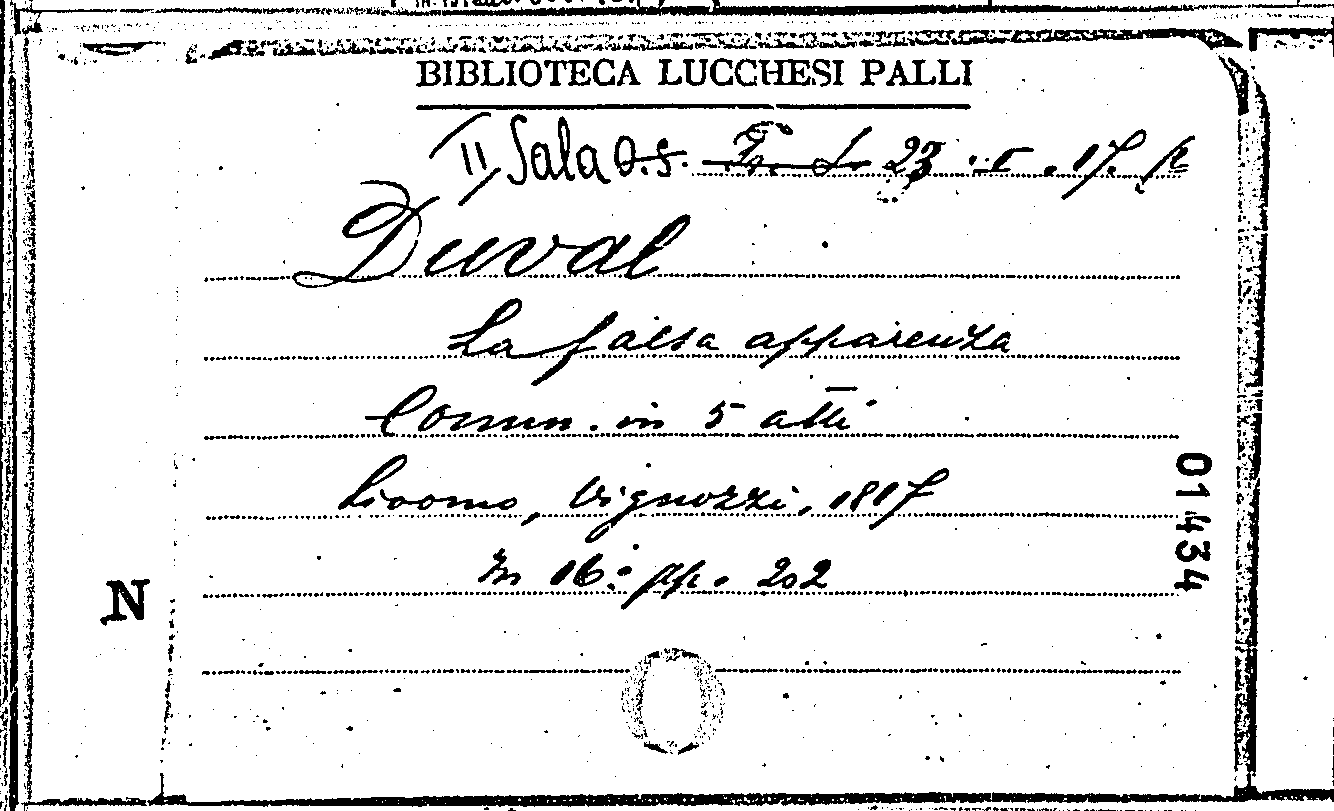 BIBLIOTECA LUCCHESI PALLI
II Sala O.S. 23 I 17.
Duval
La falsa apparenza
Comm. in 5 atti
Livorno, Vignozzi, 1817
In 16º pp. 202
01434
N